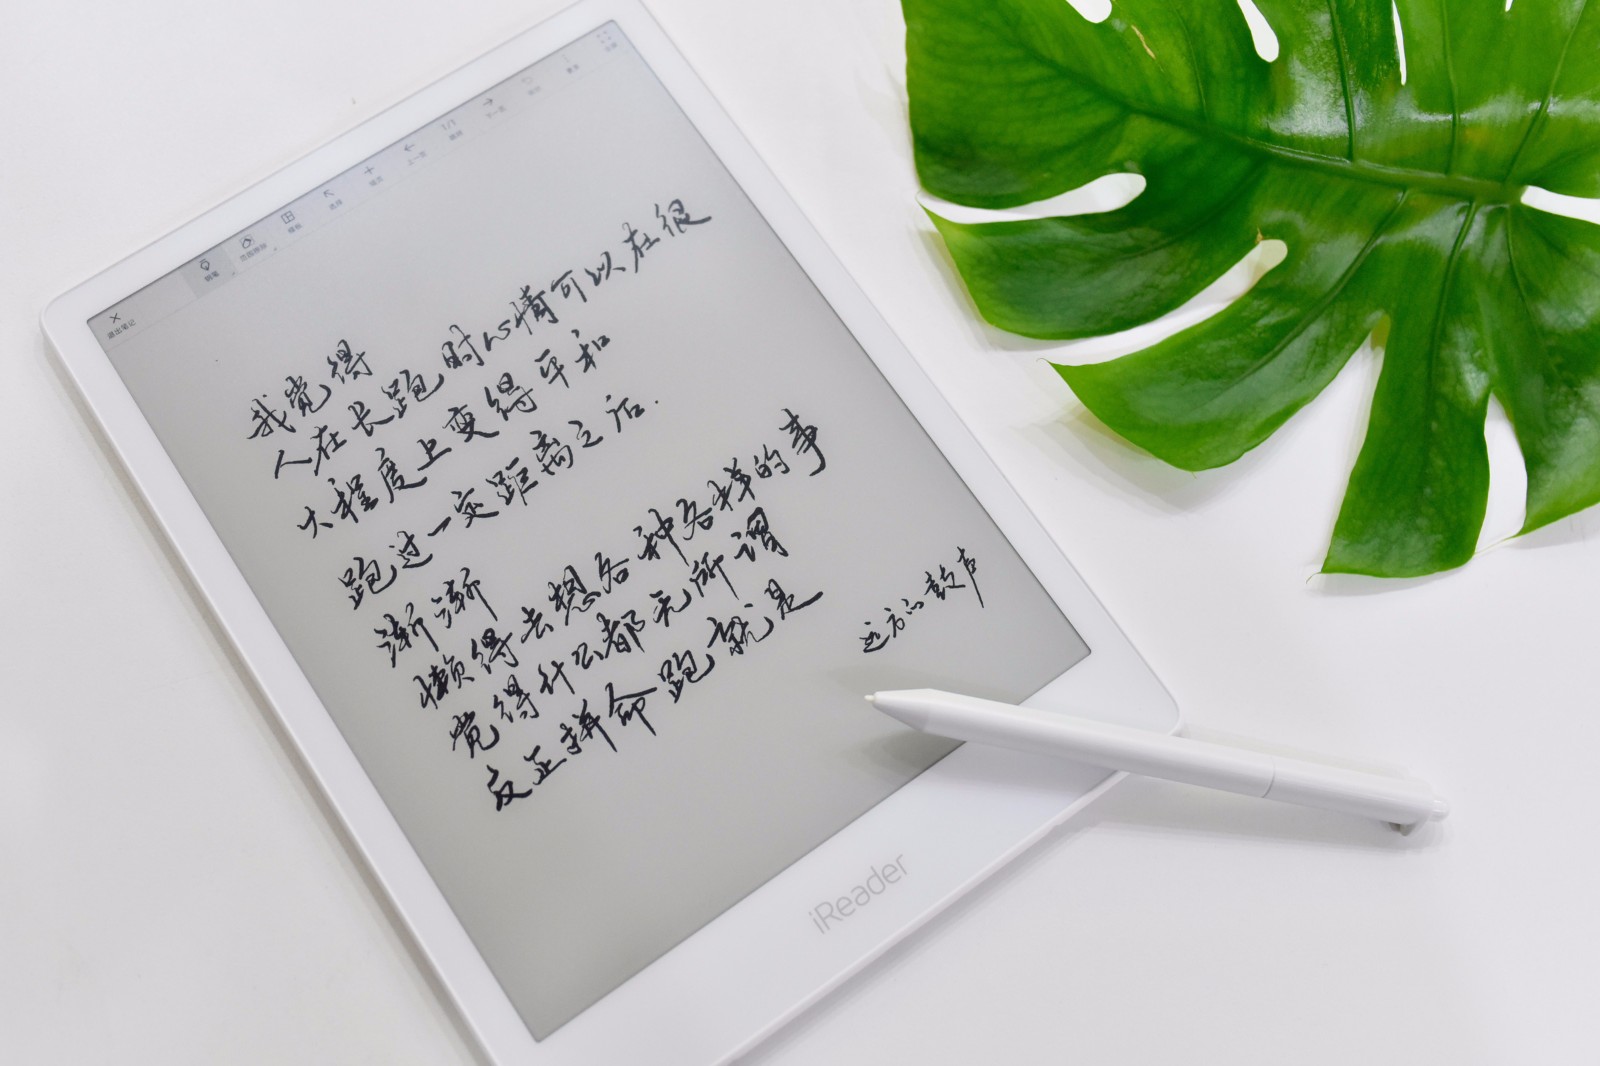 全屏
更多
下一页
1/1
上一页
插页
选择
模板
钢笔
退出笔记
我觉得
人在长跑时心情可以在很
大程度上变得平和
跑过一定距离之后.
渐渐
懒得去想各种各样的事
觉得什么都无所谓
反正拼命跑就是
远方的鼓声
iReader